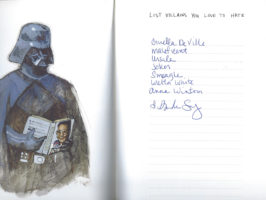 LIST VILLAINS YOU LOVE TO HATE
Cruella DeVille
Maleficent
Ursula
Joker
Smeagle
Wella White
Anna Wintour